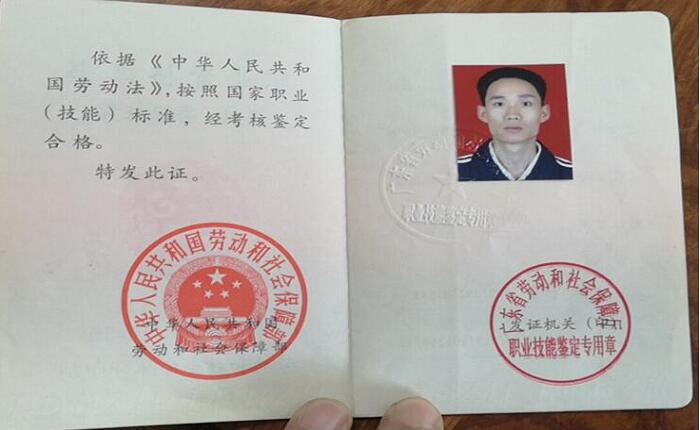 依据《中华人民共和
国劳动法》,按照国家职业
(技能)标准,经考核鉴定
合格。
特发此证。
中华人民共和国劳动和社会保障部
中华人民共和国
劳动和社会保障部
广东省劳动
职业技能鉴定专用章
广东省劳动和社会保障厅
发证机关(印)
职业技能鉴定专用章